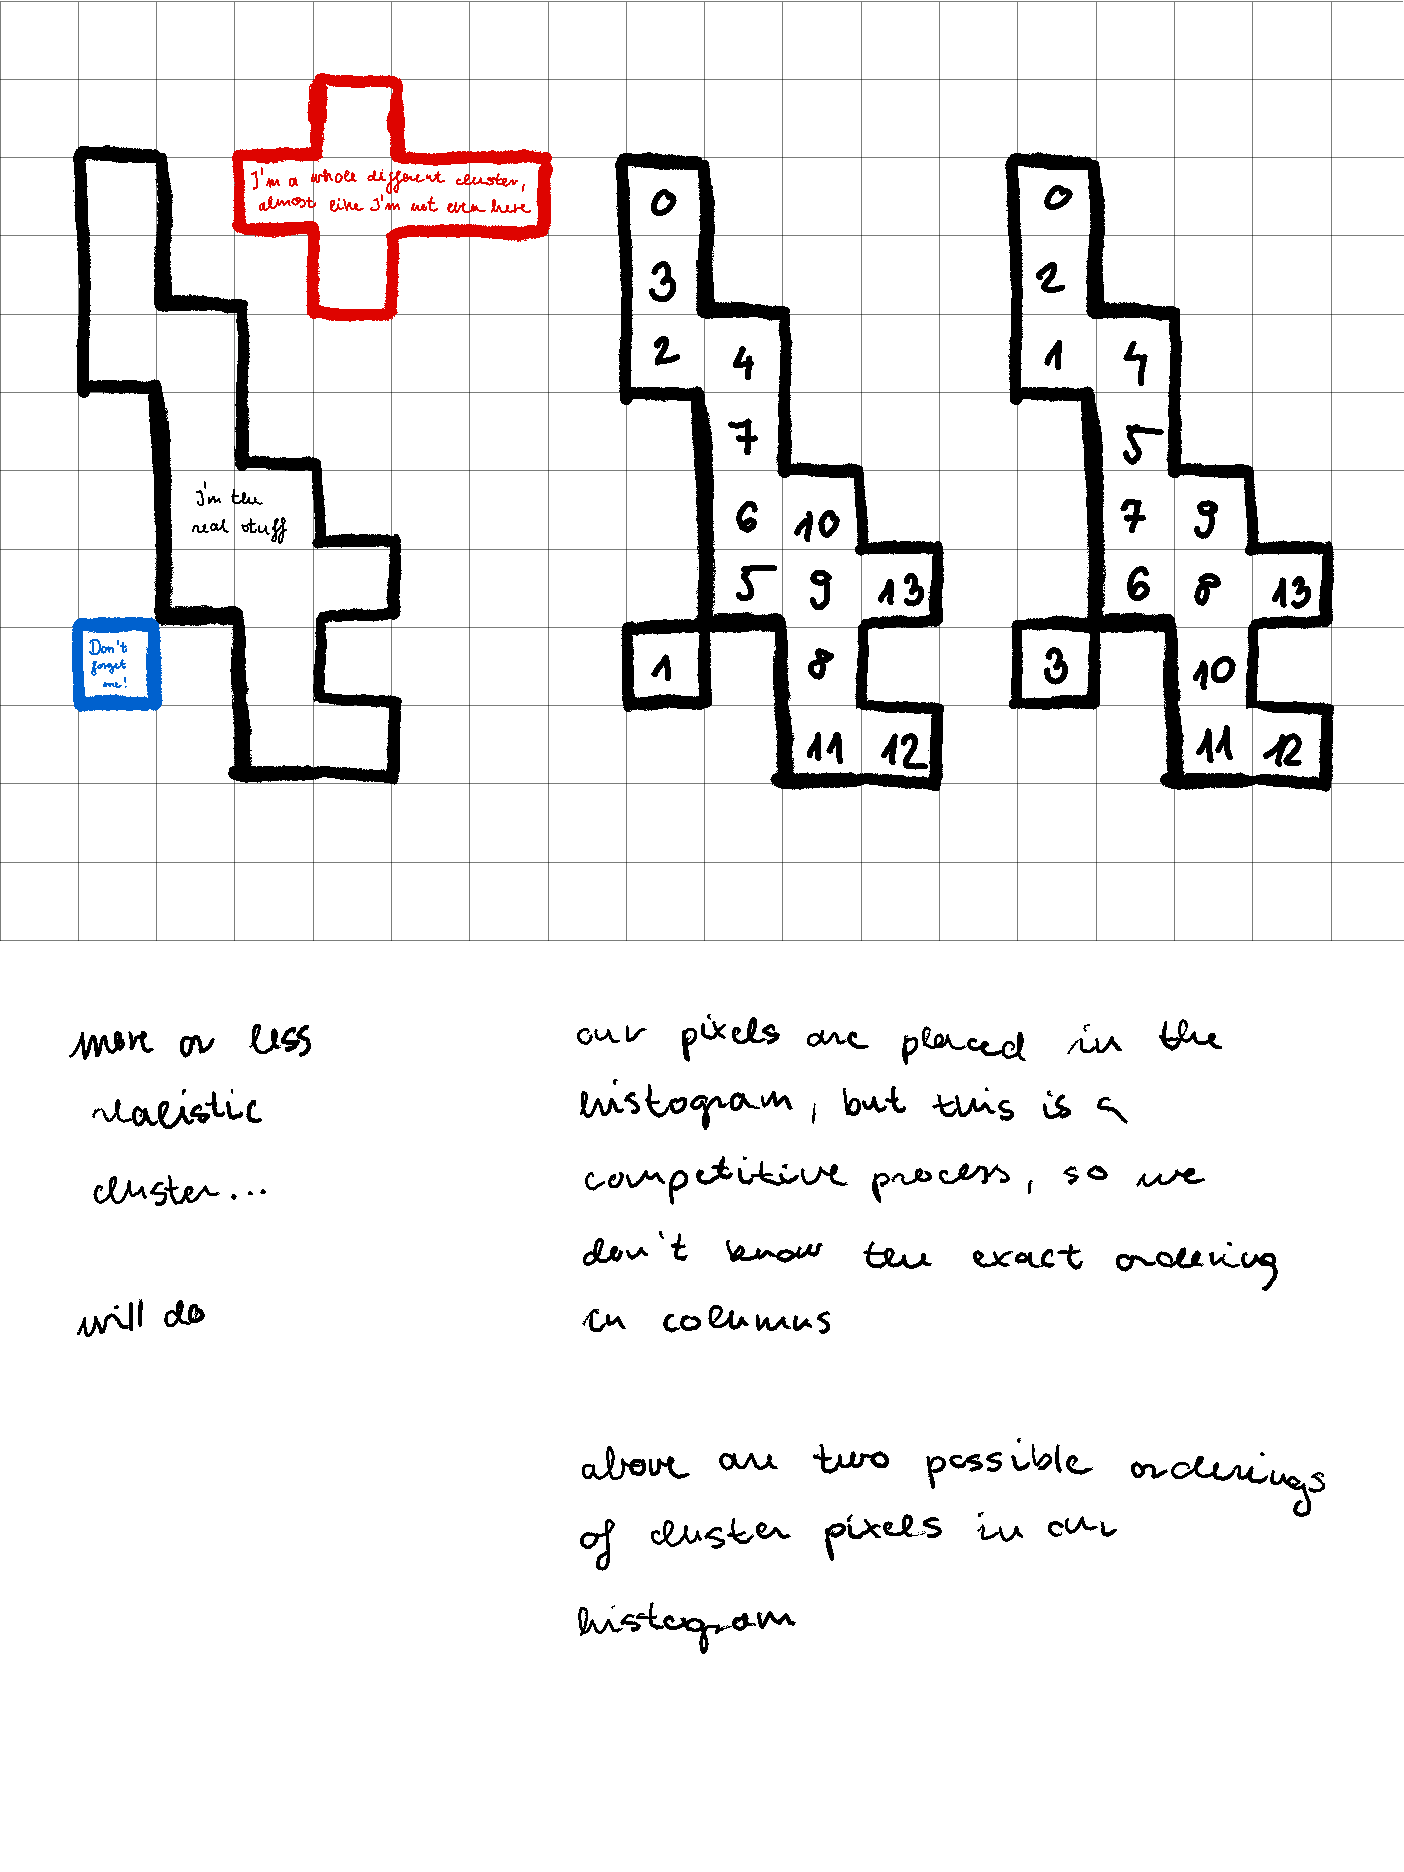 I'm a whole different cluster,
almost like I'm not even here
I'm the
real stuff
Don't
forget
me!
0
3
2 4
7
6 10
5 9 13
1 8
11 12
0
2
1 4
5
7 9
6 8 13
3 10
11 12
more or less
realistic
cluster...
will do
our pixels are placed in the
histogram, but this is a
competitive process, so we
don't know the exact ordering
in columns
above are two possible orderings
of cluster pixels in our
histogram